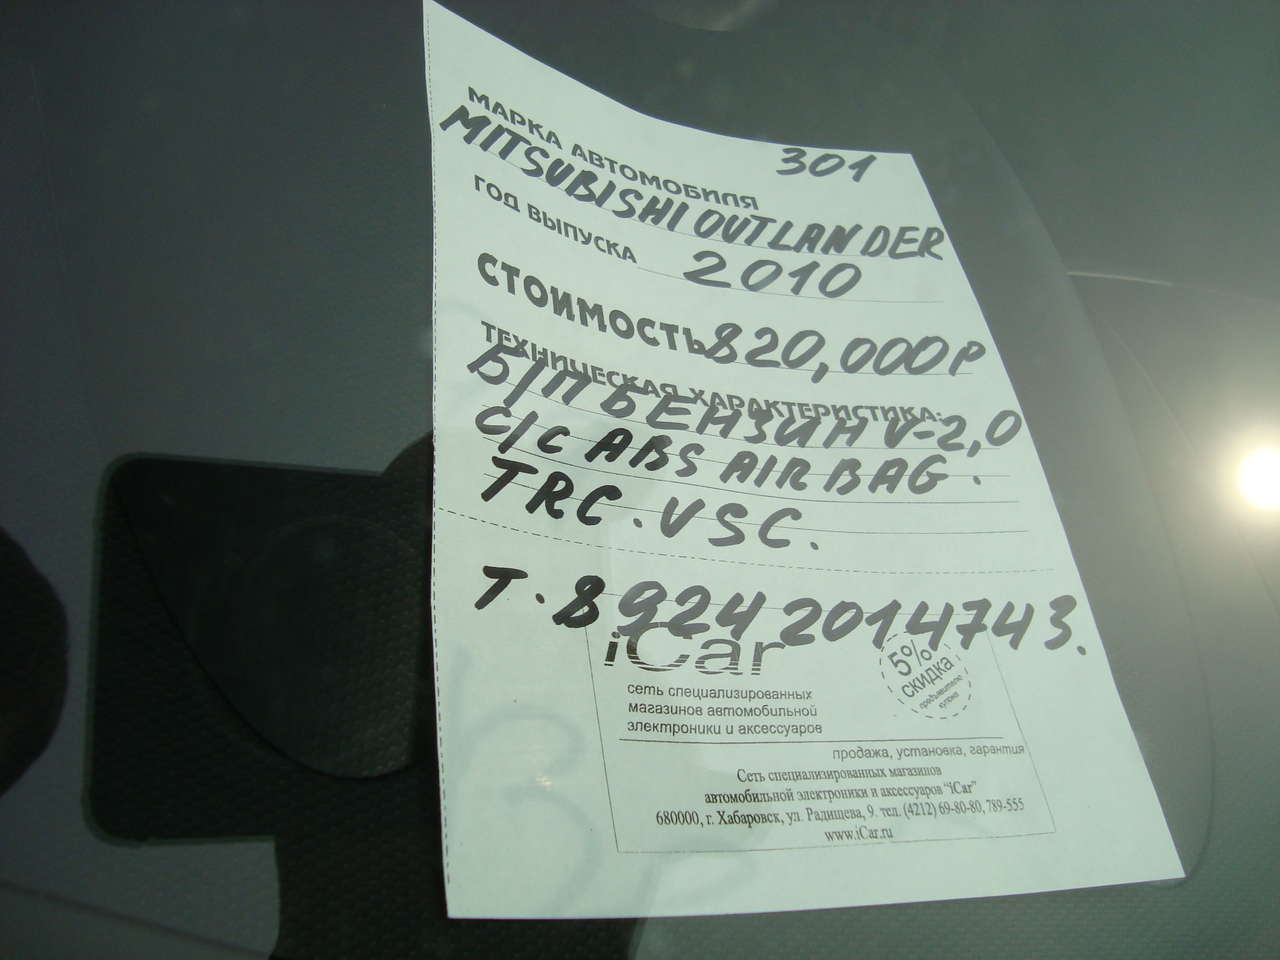 301
МАРКА АВТОМОБИЛЯ
MITSUBISHI OUTLANDER
ГОД ВЫПУСКА 2010
СТОИМОСТЬ 820,000Р
ТЕХНИЧЕСКАЯ ХАРАКТЕРИСТИКА:
Б/П БЕНЗИН V-2,0
С/С ABS AIRBAG.
TRC. VSC.
Т. 8 924 2014743.
iCar
5% скидка
предъявителю
купона
сеть специализированных
магазинов автомобильной
электроники и аксессуаров
продажа, установка, гарантия
Сеть специализированных магазинов
автомобильной электроники и аксессуаров "iCar"
680000, г. Хабаровск, ул. Радищева, 9. тел. (4212) 69-80-80, 789-555
www.iCar.ru